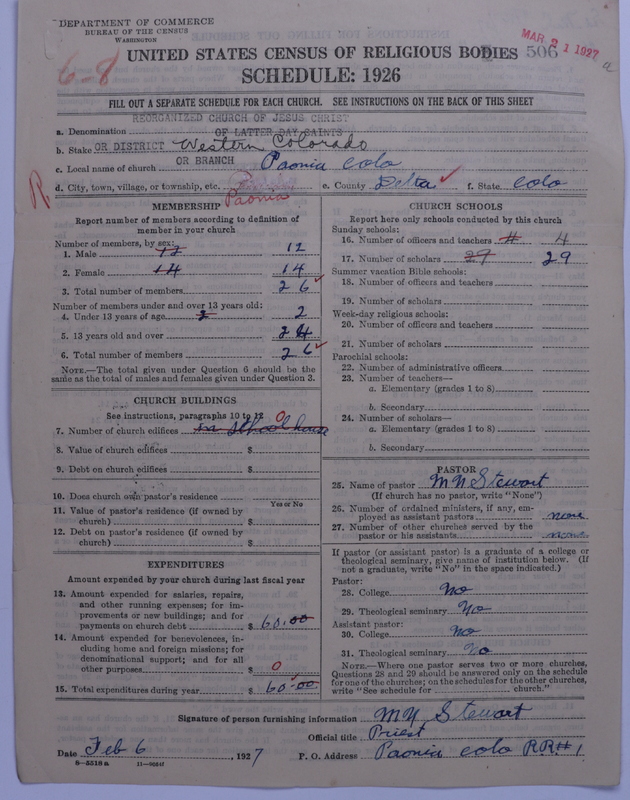 DEPARTMENT OF COMMERCE
BUREAU OF THE CENSUS
WASHINGTON
MAR 21 1927
6-8
UNITED STATES CENSUS OF RELIGIOUS BODIES 506
SCHEDULE: 1926
FILL OUT A SEPARATE SCHEDULE FOR EACH CHURCH. SEE INSTRUCTIONS ON THE BACK OF THIS SHEET
REORGANIZED CHURCH OF JESUS CHRIST
a. Denomination OF LATTER DAY SAINTS
b. Stake OR DISTRICT Western Colorado
OR BRANCH
c. Local name of church Paonia Colo
d. City, town, village, or township, etc. Paonia e. County Delta f. State Colo
R
MEMBERSHIP
Report number of members according to definition of
member in your church
Number of members, by sex:
1. Male 12 12
2. Female 14 14
3. Total number of members 26
Number of members under and over 13 years old:
4. Under 13 years of age 2 2
5. 13 years old and over 24
6. Total number of members 26
NOTE.—The total given under Question 6 should be the
same as the total of males and females given under Question 3.
CHURCH BUILDINGS
See instructions, paragraphs 10 to 12
7. Number of church edifices 0 school house
8. Value of church edifices $
9. Debt on church edifices $
10. Does church own pastor's residence
Yes or No
11. Value of pastor's residence (if owned by
church) $
12. Debt on pastor's residence (if owned by
church) $
EXPENDITURES
Amount expended by your church during last fiscal year
13. Amount expended for salaries, repairs,
and other running expenses; for im-
provements or new buildings; and for
payments on church debt $ 60.00
14. Amount expended for benevolences, in-
cluding home and foreign missions; for
denominational support; and for all
other purposes $ 0
15. Total expenditures during year $ 60.00
CHURCH SCHOOLS
Report here only schools conducted by this church
Sunday schools:
16. Number of officers and teachers 4 4
17. Number of scholars 29 29
Summer vacation Bible schools:
18. Number of officers and teachers
19. Number of scholars
Week-day religious schools:
20. Number of officers and teachers
21. Number of scholars
Parochial schools:
22. Number of administrative officers
23. Number of teachers—
a. Elementary (grades 1 to 8)
b. Secondary
24. Number of scholars—
a. Elementary (grades 1 to 8)
b. Secondary
PASTOR
25. Name of pastor M N Stewart
(If church has no pastor, write "None")
26. Number of ordained ministers, if any, em-
ployed as assistant pastors none
27. Number of other churches served by the
pastor or his assistants none
If pastor (or assistant pastor) is a graduate of a college or
theological seminary, give name of institution below. (If
not a graduate, write "No" in the space indicated.)
Pastor:
28. College No
29. Theological seminary No
Assistant pastor:
30. College No
31. Theological seminary No
NOTE.—Where one pastor serves two or more churches,
Questions 28 and 29 should be answered only on the schedule
for one of the churches; on the schedules for the other churches,
write "See schedule for church."
Signature of person furnishing information M N Stewart
Official title Priest
Date Feb 6, 1927 P. O. Address Paonia colo RR# 1
8—5518a